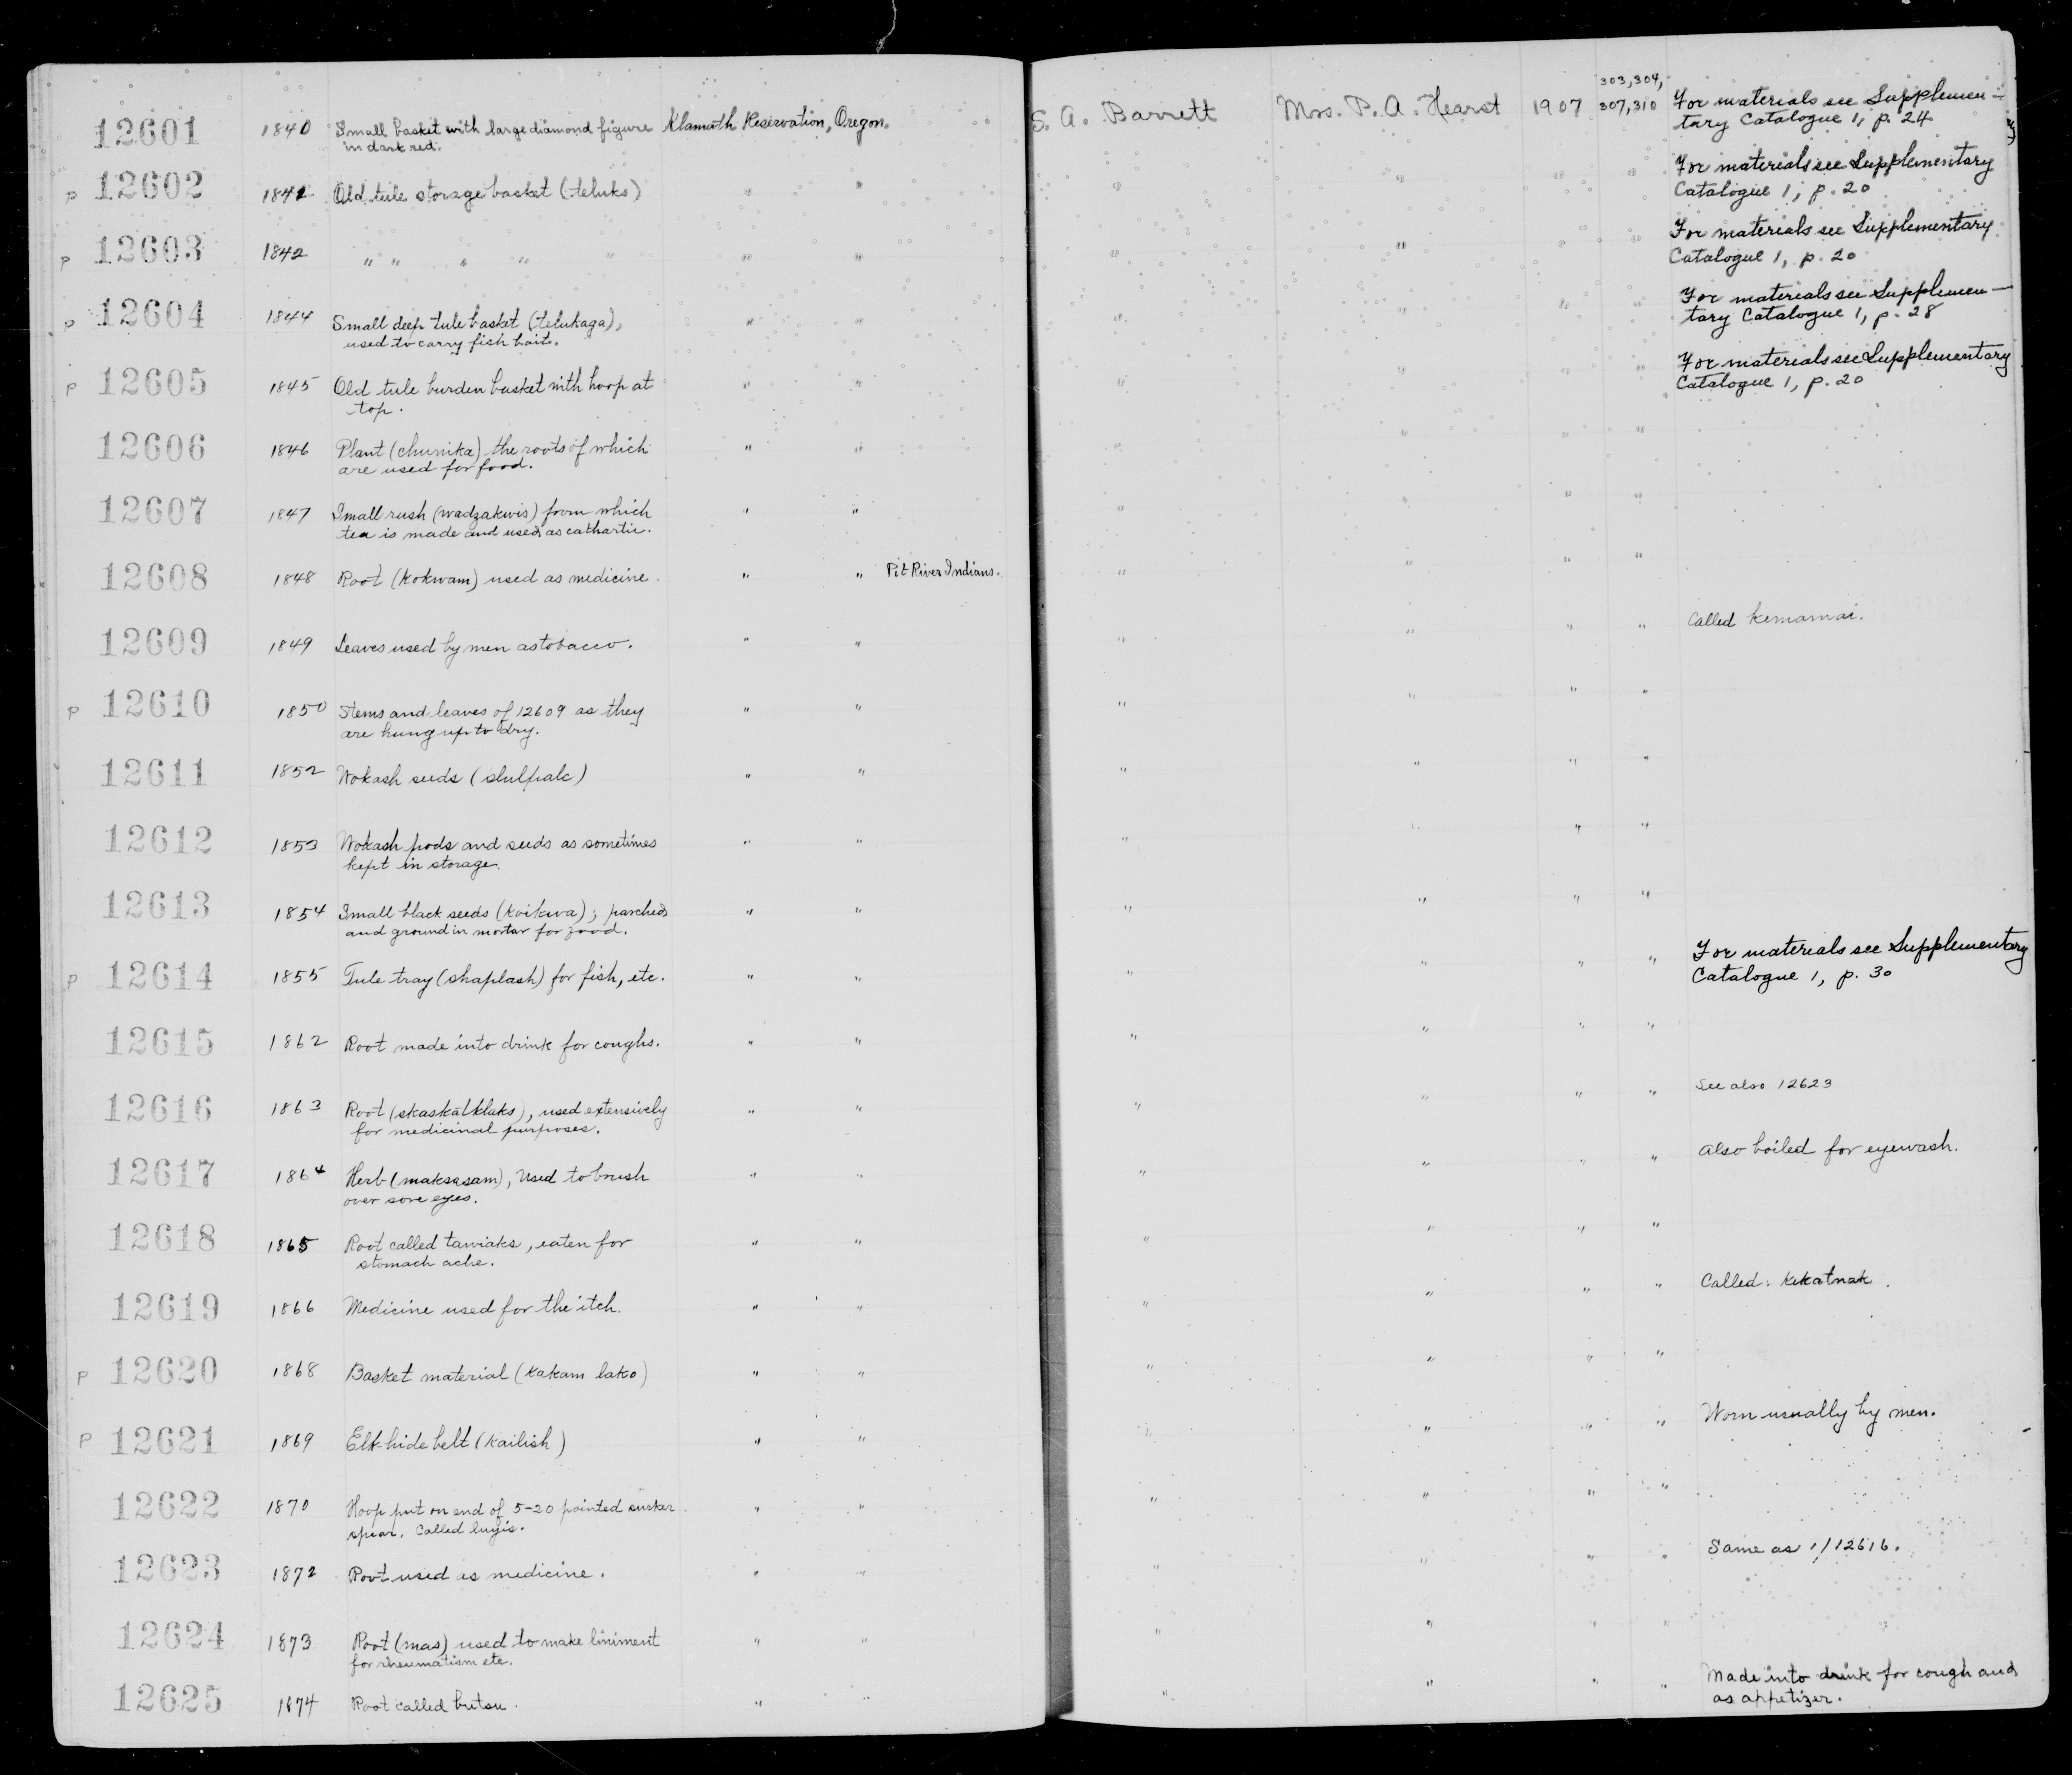 12601 1840 Small basket with large diamond figure Klamath Reservation, Oregon. S. A. Barrett Mrs. P. A. Hearst 1907 303, 304, For materials see Supplemen-
in dark red. 307, 310 tary Catalogue 1, p. 24
p 12602 1841 Old tule storage basket (teluks) " " " " " " For materials see Supplementary
Catalogue 1, p. 20
p 12603 1842 " " " " " " " " " " " For materials see Supplementary
Catalogue 1, p. 20
p 12604 1844 Small deep tule basket (telukaga), " " " " " " For materials see Supplemen-
used to carry fish bait. tary Catalogue 1, p. 28
p 12605 1845 Old tule burden basket with hoop at " " " " " " For materials see Supplementary
top. Catalogue 1, p. 20
12606 1846 Plant (chunika) the roots of which " " " " " "
are used for food.
12607 1847 Small rush (wadzakwis) from which " " " " " "
tea is made and used as cathartic.
12608 1848 Root (kokwam) used as medicine. " " Pit River Indians. " " " "
12609 1849 Leaves used by men as tobacco. " " " " " " Called kemamai.
p 12610 1850 Stems and leaves of 12609 as they " " " " " "
are hung up to dry.
12611 1852 Wokash seeds (shulpalc) " " " " " "
12612 1853 Wokash pods and seeds as sometimes " " " " " "
kept in storage.
12613 1854 Small black seeds (koikwa); parched " " " " " "
and ground in mortar for food.
p 12614 1855 Tule tray (shaplash) for fish, etc. " " " " " " For materials see Supplementary
Catalogue 1, p. 30
12615 1862 Root made into drink for coughs. " " " " " "
12616 1863 Root (skaskatklaks), used extensively " " " " " " See also 12623
for medicinal purposes.
12617 1864 Herb (maksasam), Used to brush " " " " " " Also boiled for eyewash.
over sore eyes.
12618 1865 Root called tawiaks, eaten for " " " " " "
stomach ache.
12619 1866 Medicine used for the itch. " " " " " " Called: kekatnak.
P 12620 1868 Basket material (kakam lako) " " " " " "
P 12621 1869 Elk-hide belt (kailish) " " " " " " Worn usually by men.
12622 1870 Hoop put on end of 5-20 pointed sucker " " " " " "
spear. Called luyis.
12623 1872 Root used as medicine. " " " " " " Same as 1/12616.
12624 1873 Root (mas) used to make liniment " " " " " "
for rheumatism etc.
12625 1874 Root called butsu. " " " " " " Made into drink for cough and
as appetizer.